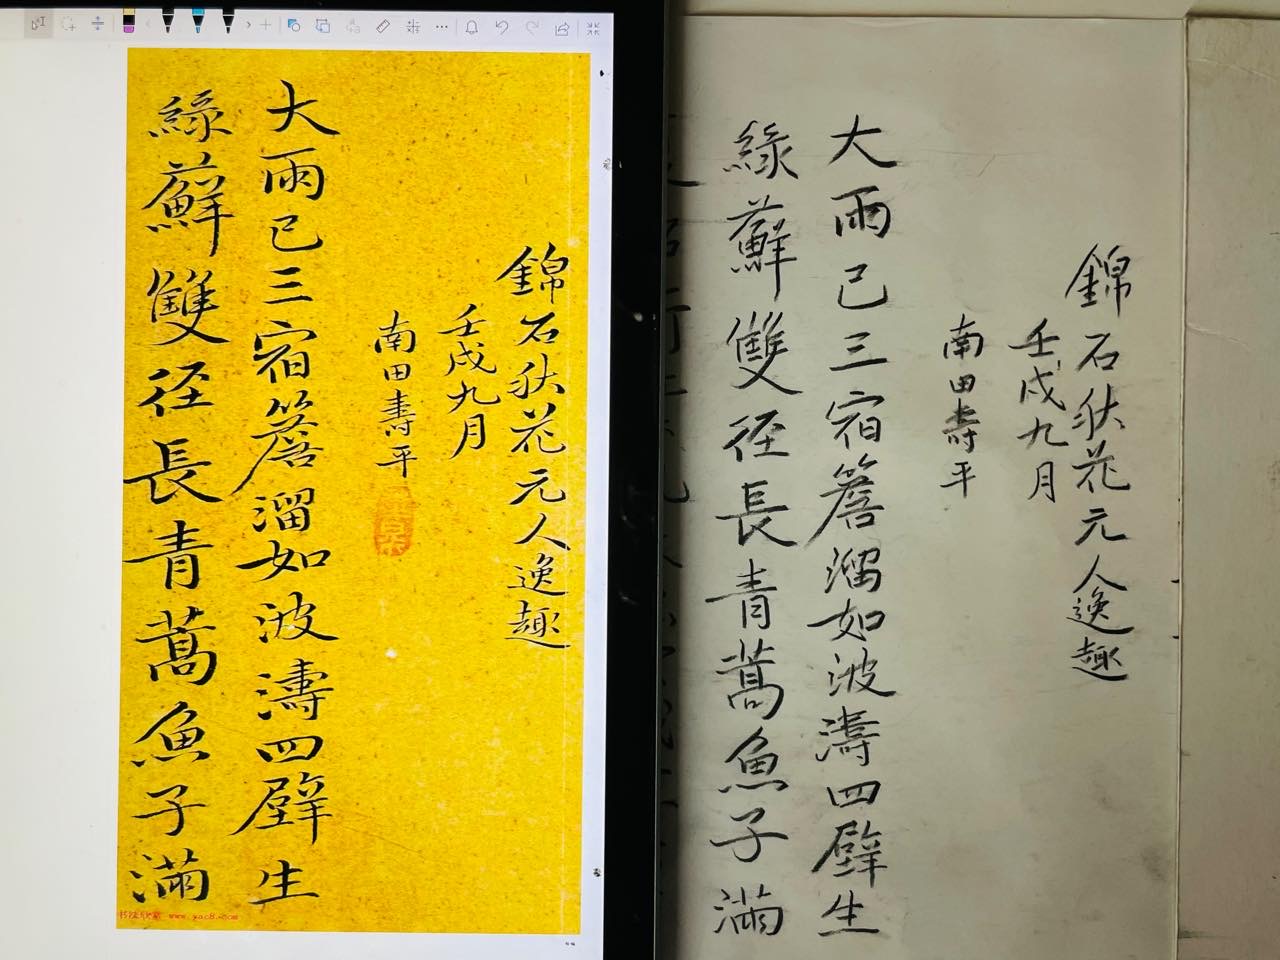 錦石秋花元人逸趣
壬戌九月
南田壽平
大雨已三宿簷溜如波濤四壁生
綠蘚雙径長青蒿魚子滿
书法欣赏 www.yac8.com
錦石秋花元人逸趣
壬戌九月
南田壽平
大雨已三宿簷溜如波濤四壁生
綠蘚雙径長青蒿魚子滿